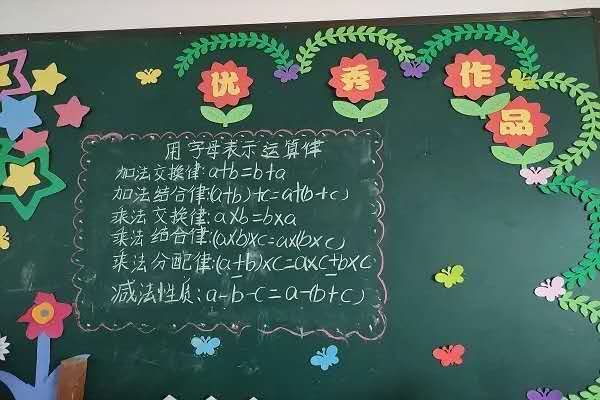 优秀作品
用字母表示运算律
加法交换律:a+b=b+a
加法结合律:(a+b)+c=a+(b+c)
乘法交换律:a×b=b×a
乘法结合律:(a×b)×c=a×(b×c)
乘法分配律:(a±b)×c=a×c±b×c
减法性质:a-b-c=a-(b+c)